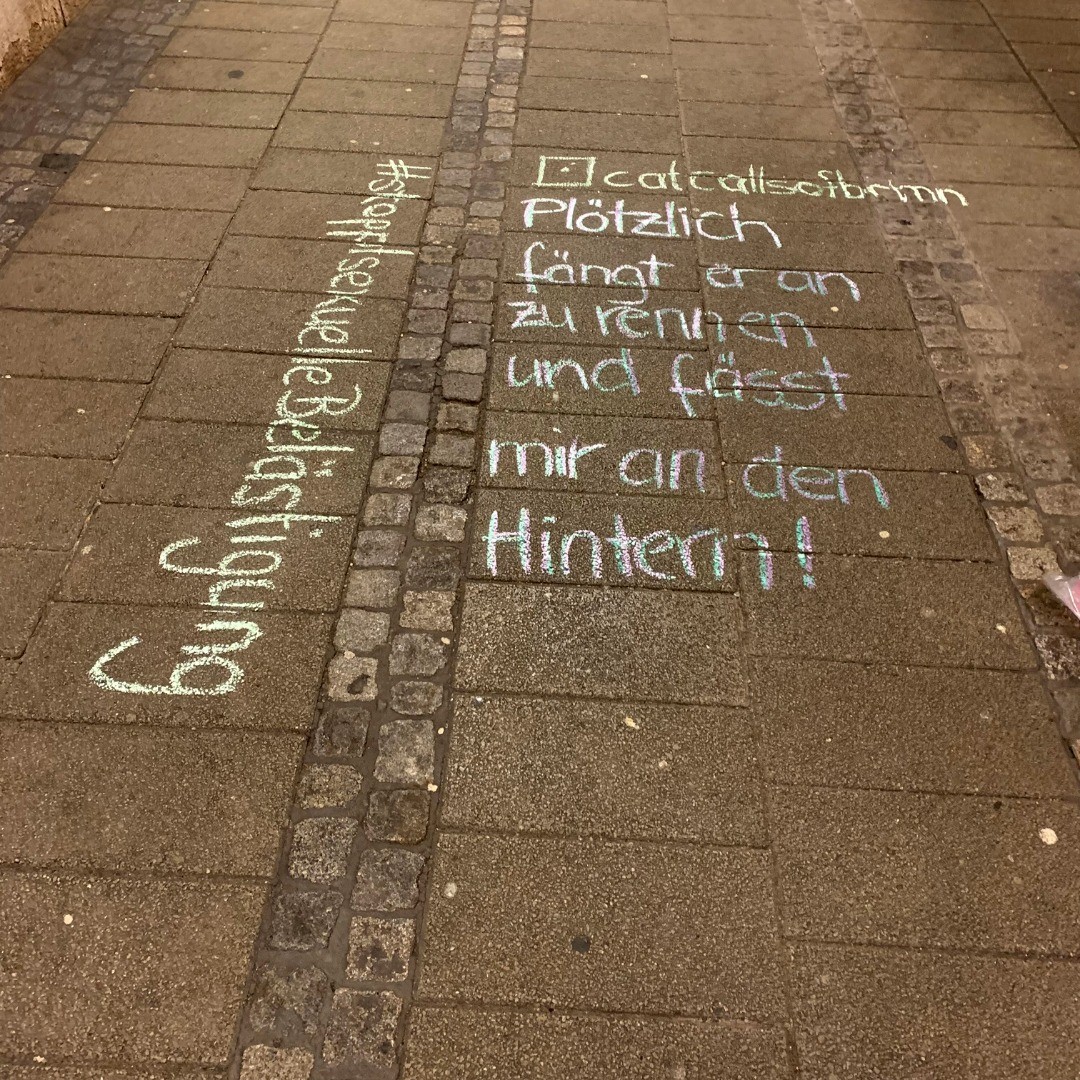 catcallsofbrmn
Plötzlich
fängt er an
zu rennen
und fässt
mir an den
Hintern!
#stopptsexuelleBelästigung